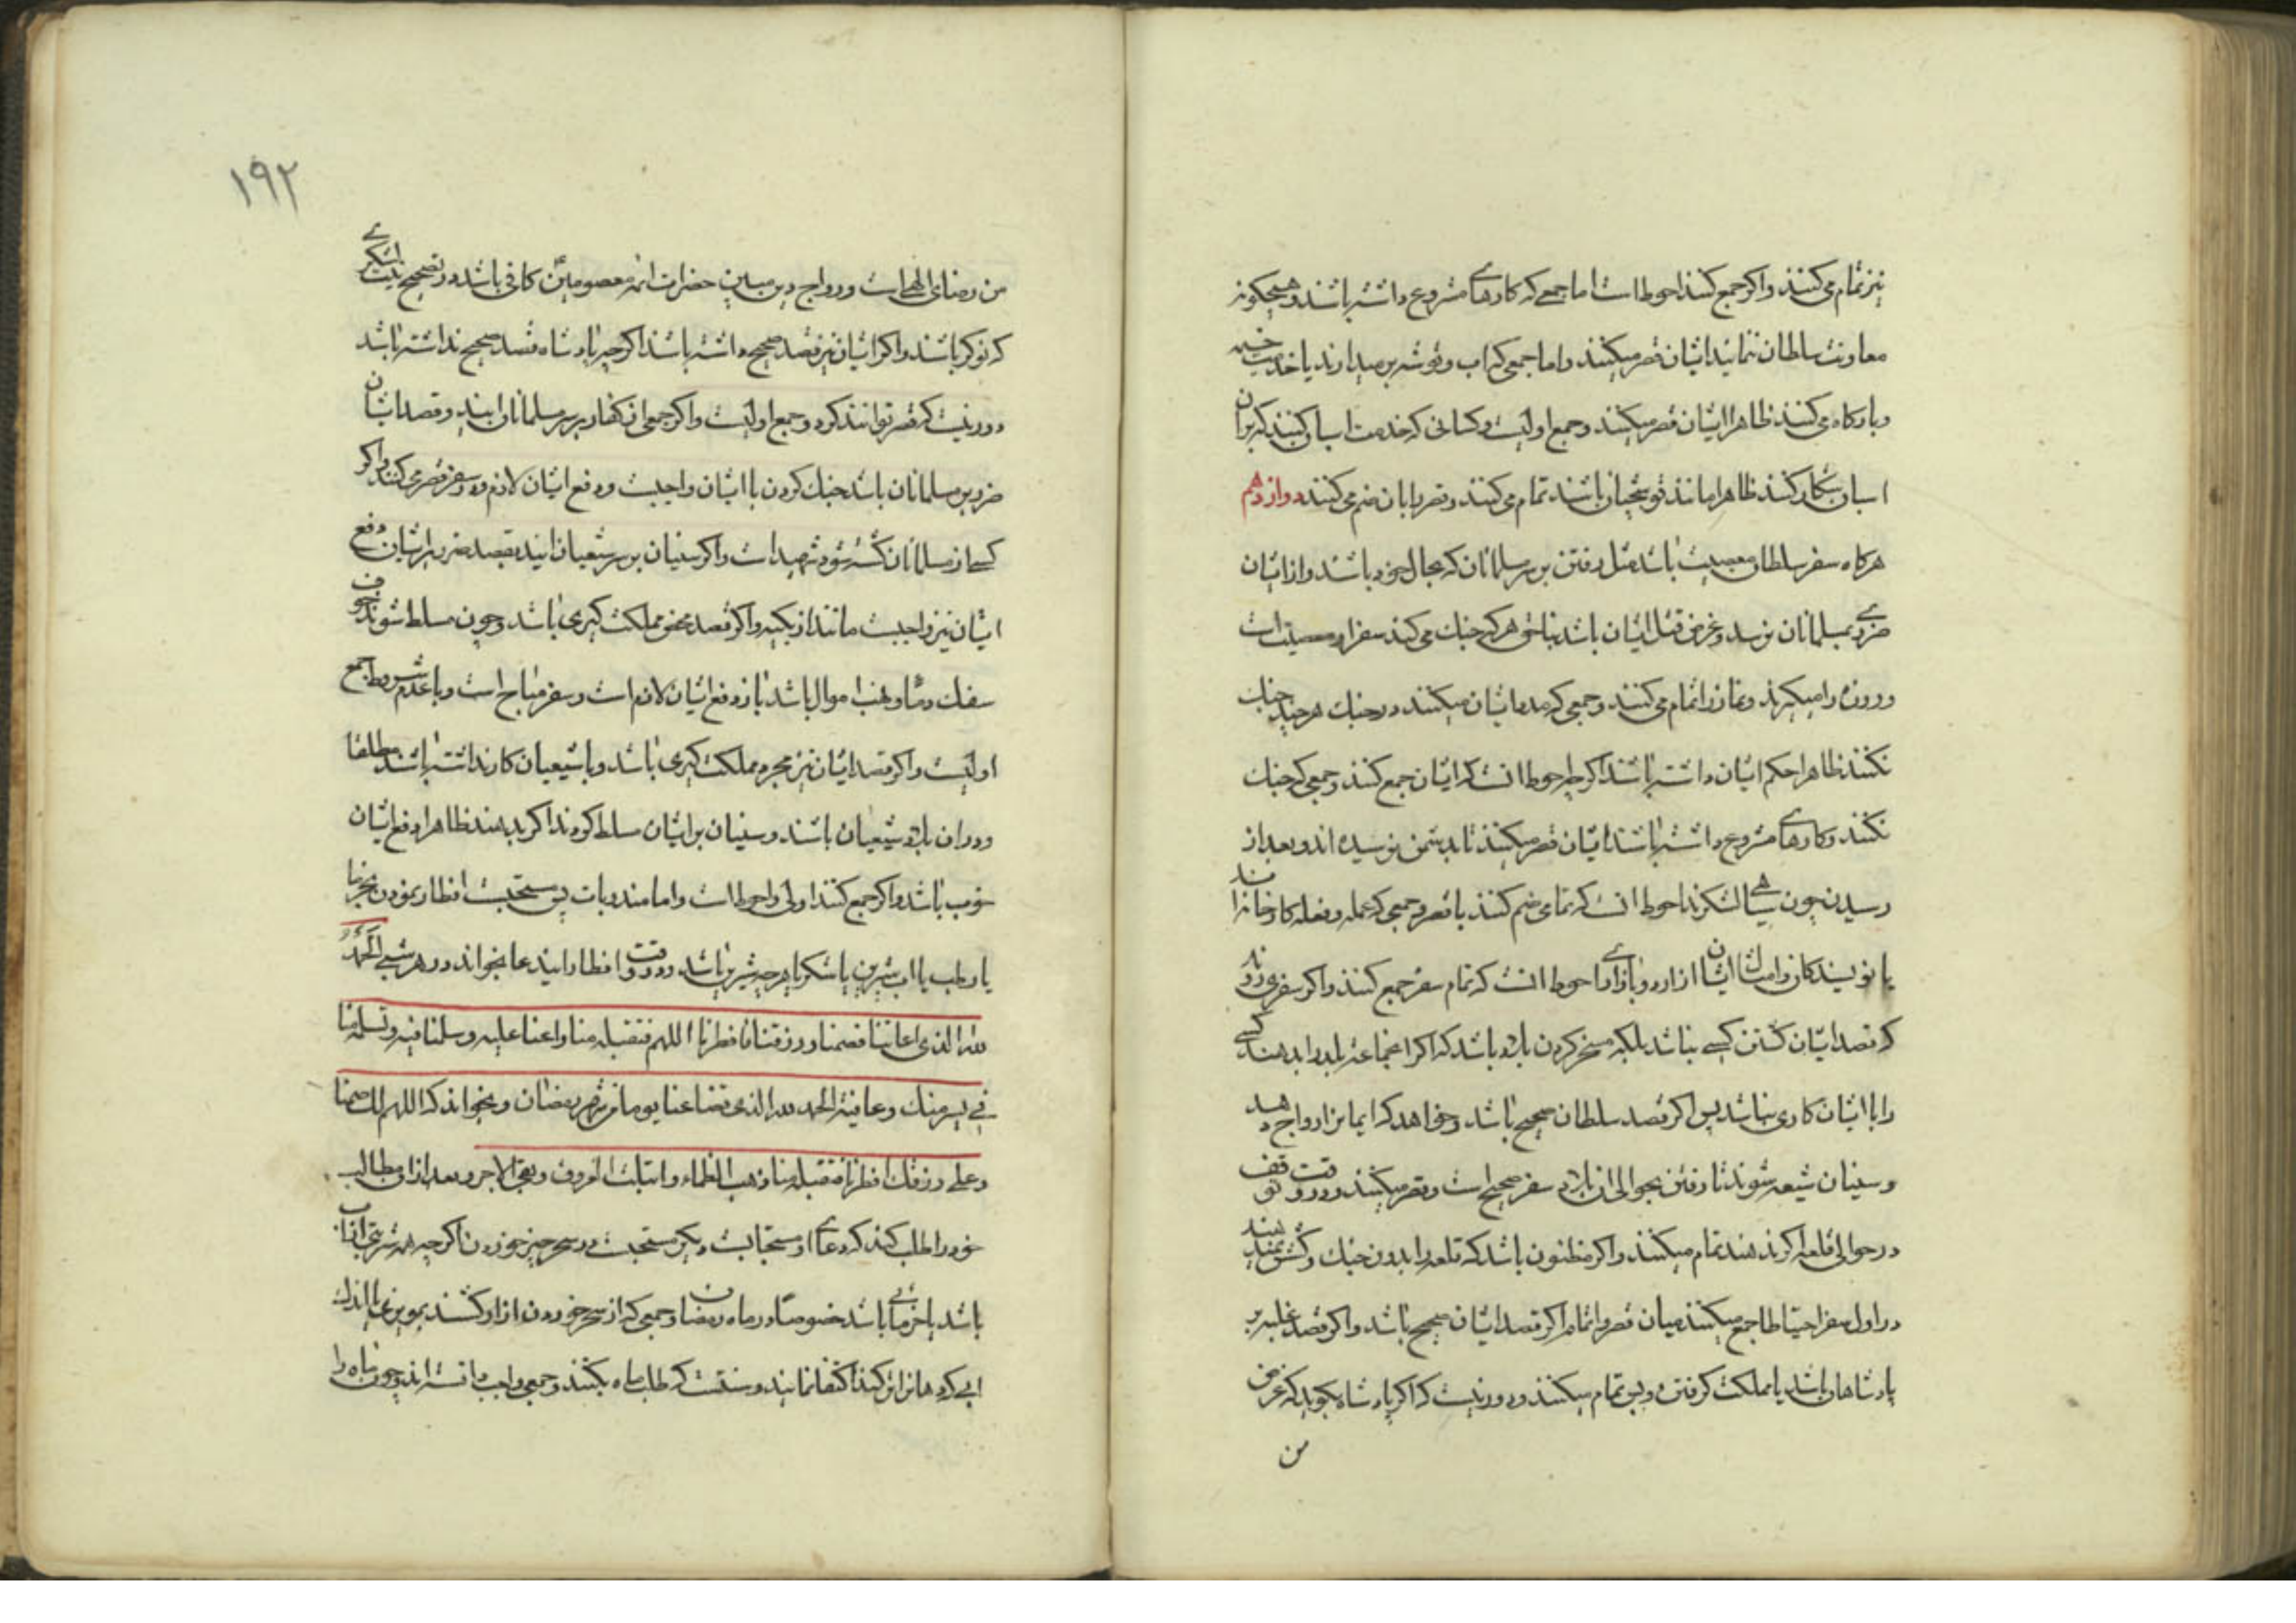 نیز تمام می کنند و اکر جمع کنند احوط است اما جمعی که کارهای مشروع داشته باشند و هیچکونه
معاونت سلطان ننمایند ایشان قصر میکنند و اما جمعی که اب و توشه بر میدارند یا خدمت خیمه
و بارکاه می کنند ظاهرا ایشان قصر میکنند و جمع اولیست و کسانی که خدمت اسبان کنند که بران
اسبان شکار کنند ظاهرا مانند قوشچیان باشند تمام می کنند و قصر بابان ضم می کنند دوازدهم
هرکاه سفر سلطان معصیت باشد مثل رفتن بر سر مسلمانان که بحال خود باشند و از ایشان
ضرری بمسلمانان نرسد و غرض قتل ایشان باشد بناحق هر که جنك می کند سفر او معصیت است
و روزه را میکیرند و نماز را تمام می کنند و جمعی که مدد ایشان میکنند در جنك هر چند جنك
نکنند ظاهرا حکم ایشان داشته باشند اکر چه احوط انست که ایشان جمع کنند و جمعی که جنك
نکنند و کارهای مشروع داشته باشند ایشان قصر میکنند تا بدشمن نرسیده اند و بعد از
رسیدن چون سیاهی لشکرند احوط انست که تمامی ضم کنند با قصر و جمعی که عمله و فعله کارخانه اند
یا نویسندکان و امثال ایشان از اردو بازاری احوط انست که تمام سفر جمع کنند و اکر سفری رود
که قصد ایشان کشتن کسی نباشد بلکه مسخر کردن بلاد باشد که اکر اعجماعه بلد را بدهند کسی
را با ایشان کاری نباشد پس اکر قصد سلطان صحیح باشد و خواهد که ایمانرا رواج دهد
و سنیان شیعه شوند تا رفتن بحوالی ان بلاد سفر صحیح است و قصر میکنند و در وقت توقف
در حوالی قلعه اکر ندهند تمام میکنند و اکر مظنون باشد که قلعه را بدون جنك و کشش نمیدهند
در اول سفر احتیاطا جمع میکنند میان قصر و اتمام اکر قصد ایشان صحیح باشد و اکر قصد غلبه بر
پادشاهان باشد یا مملکت کرفتن و بس تمام میکنند و دور نیست که اکر پادشاه بکوید که غرض
من
۱۹۲
من رضای الهی است و رواج دین مبین حضرات ائمه معصومین کافی باشد در تصحیح نیت لشکری
که نوکر باشند و اکر ایشان نیز قصد صحیح داشته باشند اکر چه پادشاه قصد صحیح نداشته باشد
دور نیست که قصر توانند کرد و جمع اولیست و اکر جمعی از کفار بر سر مسلمانان ایند و قصد ایشان
ضرر بر مسلمانان باشد جنك کردن با ایشان واجبست و دفع ایشان لازم و در سفر قصر می کنند و اکر
کسی از مسلمانان کشته شود شهید است و اکر سنیان بر سر شیعیان ایند بقصد ضرر بر ایشان دفع
ایشان نیز واجبست مانند ازبکیه و اکر قصد محض مملکت کیری باشد و چون مسلط شوند خوف
سفك دماء و نهب اموال باشد باز دفع ایشان لازم است و سفر مباح است و با عدم شروط جمع
اولیست و اکر قصد ایشان نیز مجرد مملکت کیری باشد و با شیعیان کار نداشته باشند مطلقا
و در ان بلاد شیعیان باشند و سنیان بر ایشان مسلط کردند اکر بدهند ظاهرا دفع ایشان
خوب باشد و اکر جمع کنند اولی و احوط است و اما مندوبات پس مستحبست افطار نمودن بخرما
یا رطب یا اب شیرین یا شکر یا هر چه شیرین باشد و در وقت افطار ایند عا بخواند در هر شبی الحمد
لله الذی اعاننا فصمنا و رزقنا فافطرنا اللهم فتقبله منا و اعنا علیه و سلمنا فیه و تسلمه منا
فی یسر منك و عافیة الحمد لله الذی قضا عنا یوما من شهر رمضان و بخواند که اللهم لك صمنا
و علی رزقك افطرنا فتقبله منا ذهب الظماء و ابتلت العروق و بقی الاجر و بعد از ان مطالب
خود را طلب کند که دعای او مستجابست دیکر مستحبست در سحر چیز خوردن اکر چه همه شربتی اب
باشد یا خرمایی باشد خصوصا در ماه رمضان و جمعی که از سحر خوردن ازار کشند بمویزی یا اندك
ابی که دهانرا تر کند اکتفا نمایند و سنتست که طلب ماه بکنند و جمعی واجب دانسته اند و چون ماه را